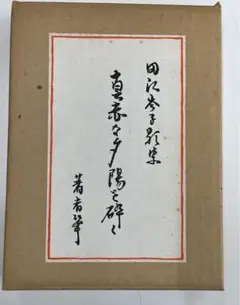 田江岑子歌集
真赤な夕陽を砕く
著者筆